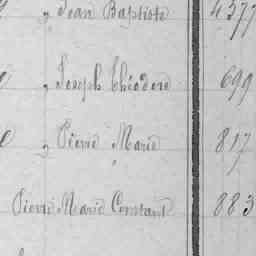 „ Jean Baptiste 4377
„ Joseph Théodore 699
„ Pierre Marie 817
Pierre Marie Constant 883